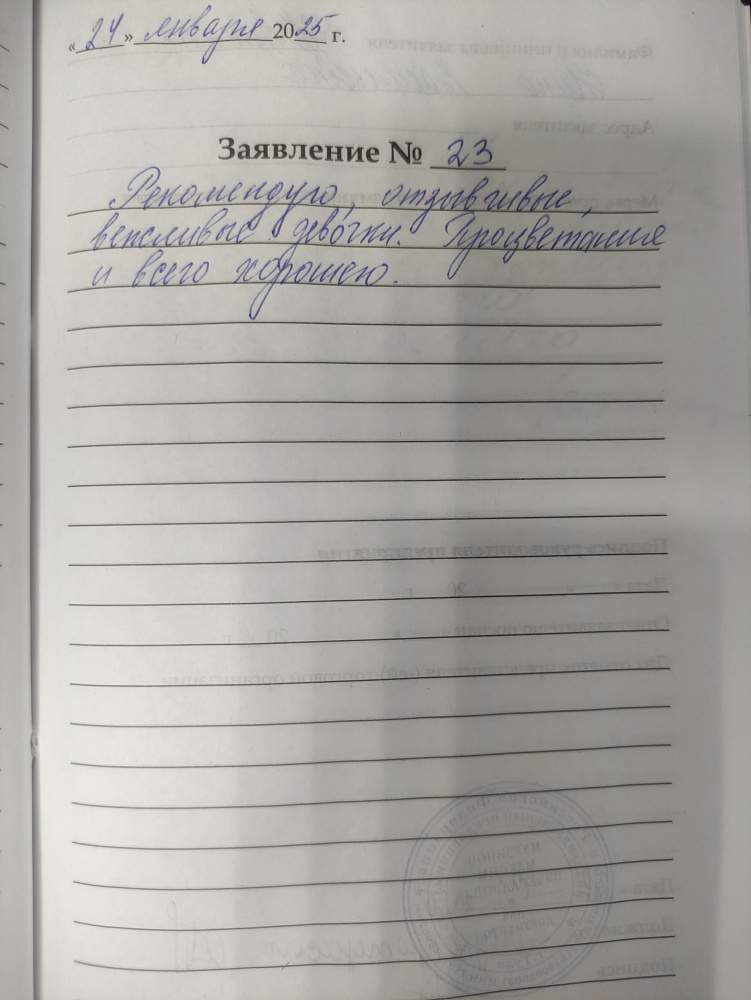 «24» января 2025 г.
Заявление № 23
Рекомендую, отзывчивые,
вежливые девочки. Процветания
и всего хорошего.